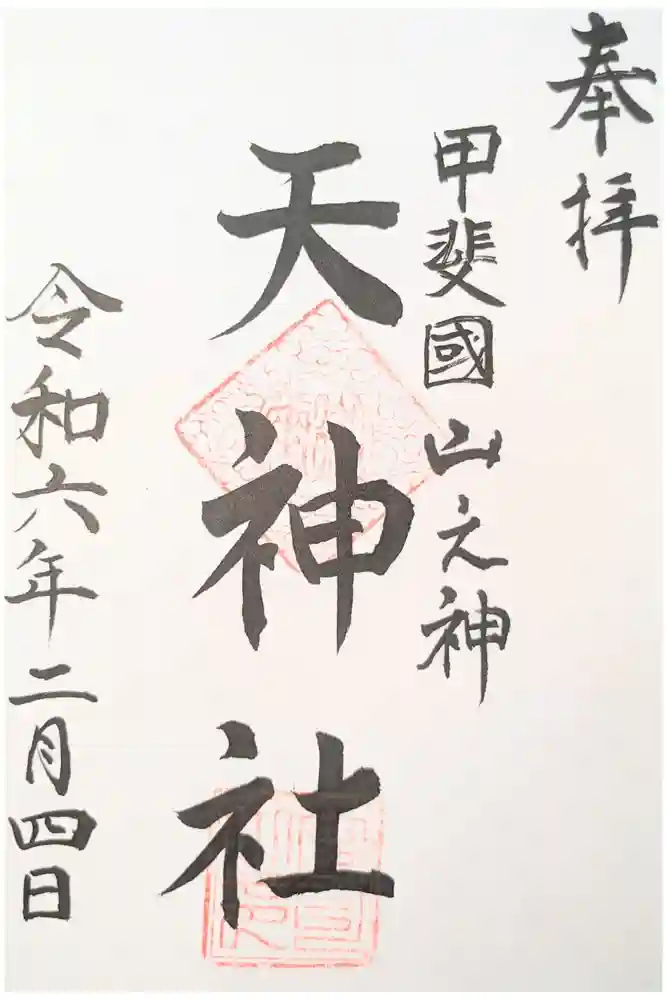 奉拝
甲斐國山之神
天神社
令和六年二月四日